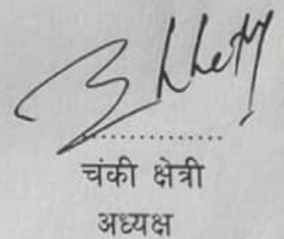 चंकी क्षेत्री
अध्यक्ष